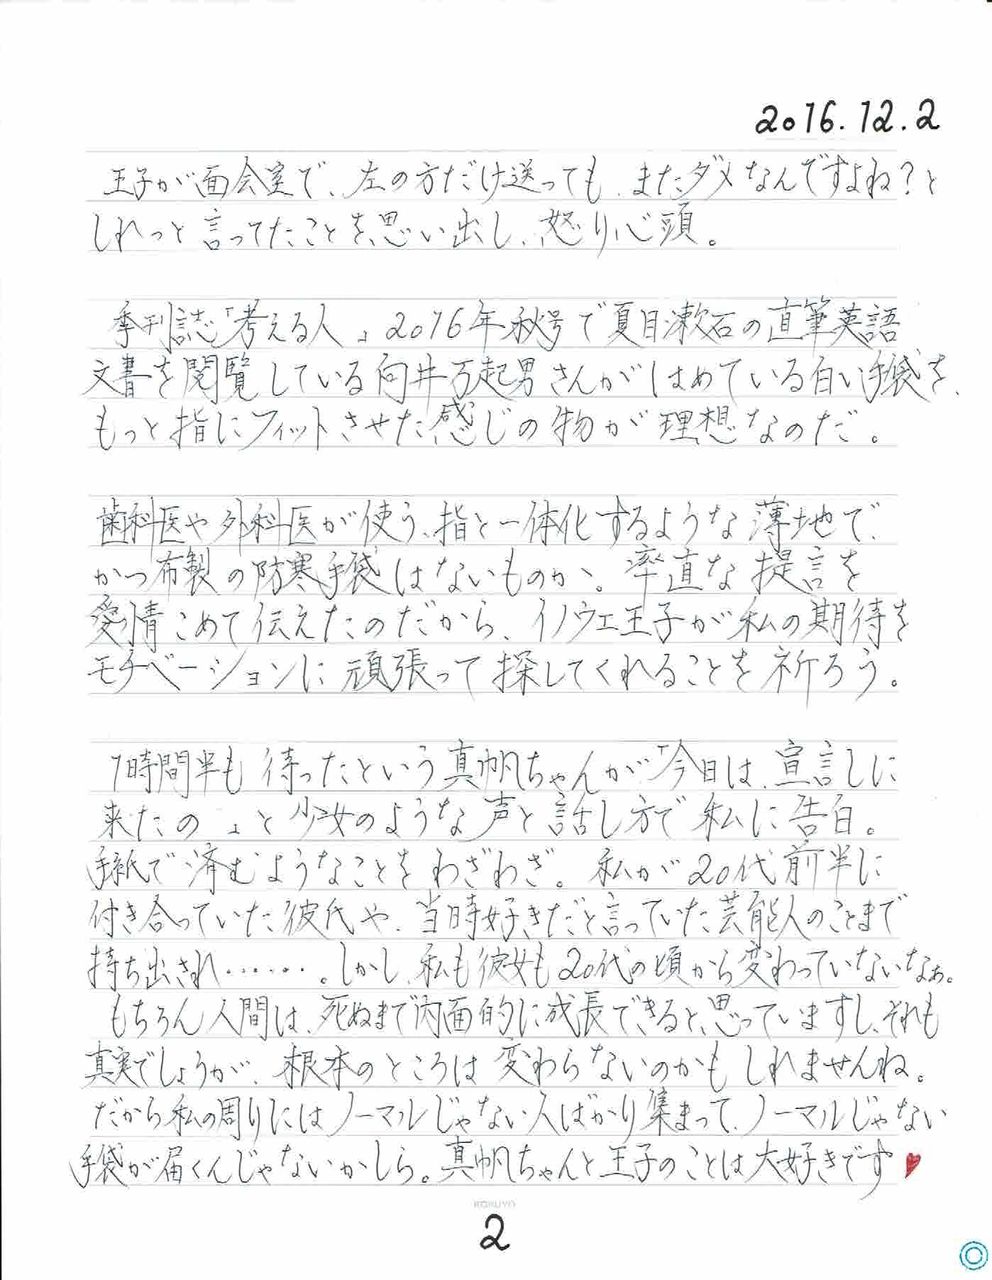 2016.12.2
王子が面会室で、左の方だけ送っても、まだダメなんですよね？と
しれっと言ってたことを思い出し、怒り心頭。
季刊誌「考える人」2016年秋号で夏目漱石の直筆英語
文書を閲覧している向井万起男さんがはめている白い手袋を、
もっと指にフィットさせた感じの物が理想なのだ。
歯科医や外科医が使う、指と一体化するような薄地で、
かつ布製の防寒手袋はないものか。率直な提言を
愛情こめて伝えたのだから、イノウエ王子が私の期待を
モチベーションに頑張って探してくれることを祈ろう。
1時間半も待ったという真帆ちゃんが「今日は、宣言しに
来たの」と少女のような声と話し方で私に告白。
手紙で済むようなことをわざわざ。私が20代前半に
付き合っていた彼氏や、当時好きだと言っていた芸能人のことまで
持ち出され……。しかし、私も彼女も20代の頃から変わっていないなぁ。
もちろん人間は、死ぬまで内面的に成長できると思っていますし、それも
真実でしょうが、根本のところは変わらないのかもしれませんね。
だから私の周りにはノーマルじゃない人ばかり集まって、ノーマルじゃない
手袋が届くんじゃないかしら。真帆ちゃんと王子のことは大好きです
KOKUYO
2